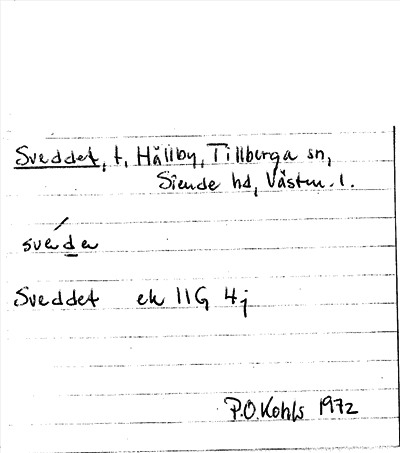 Sveddet, t, Hällby, Tillberga sn,
Siende hd, Västm. l.
sveden
Sveddet ek 11G 4j
P.O. Kohls 1972